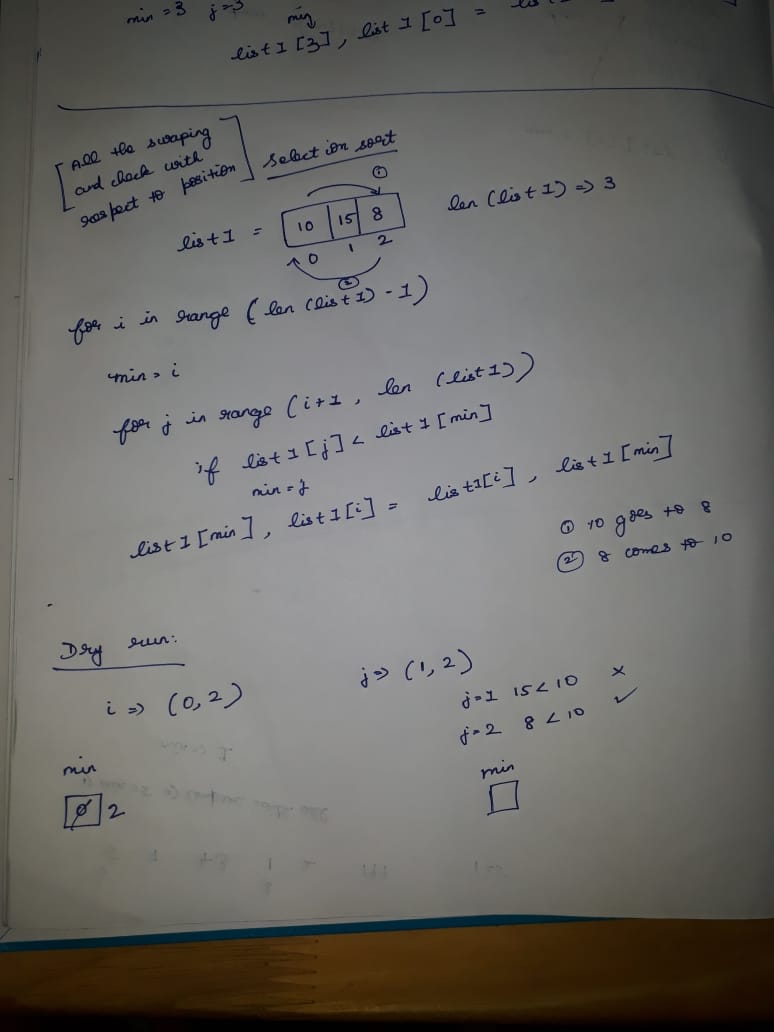 min = 3 j = 3
min
list 1 [3], list 1 [0] =
[All the swaping
and check with
respect to position]
Selection sort
①
list1 = 10 15 8
len (list 1) => 3
0 1 2
②
for i in range (len (list 1) - 1)
min = i
for j in range (i+1, len (list 1))
if list 1 [j] < list 1 [min]
min = j
list 1 [min], list 1 [i] = list1[i], list 1 [min]
① 10 goes to 8
② 8 comes to 10
Dry run:
i => (0, 2)
j => (1, 2)
j = 1 15 < 10 x
j = 2 8 < 10 ✓
min
0 2
min